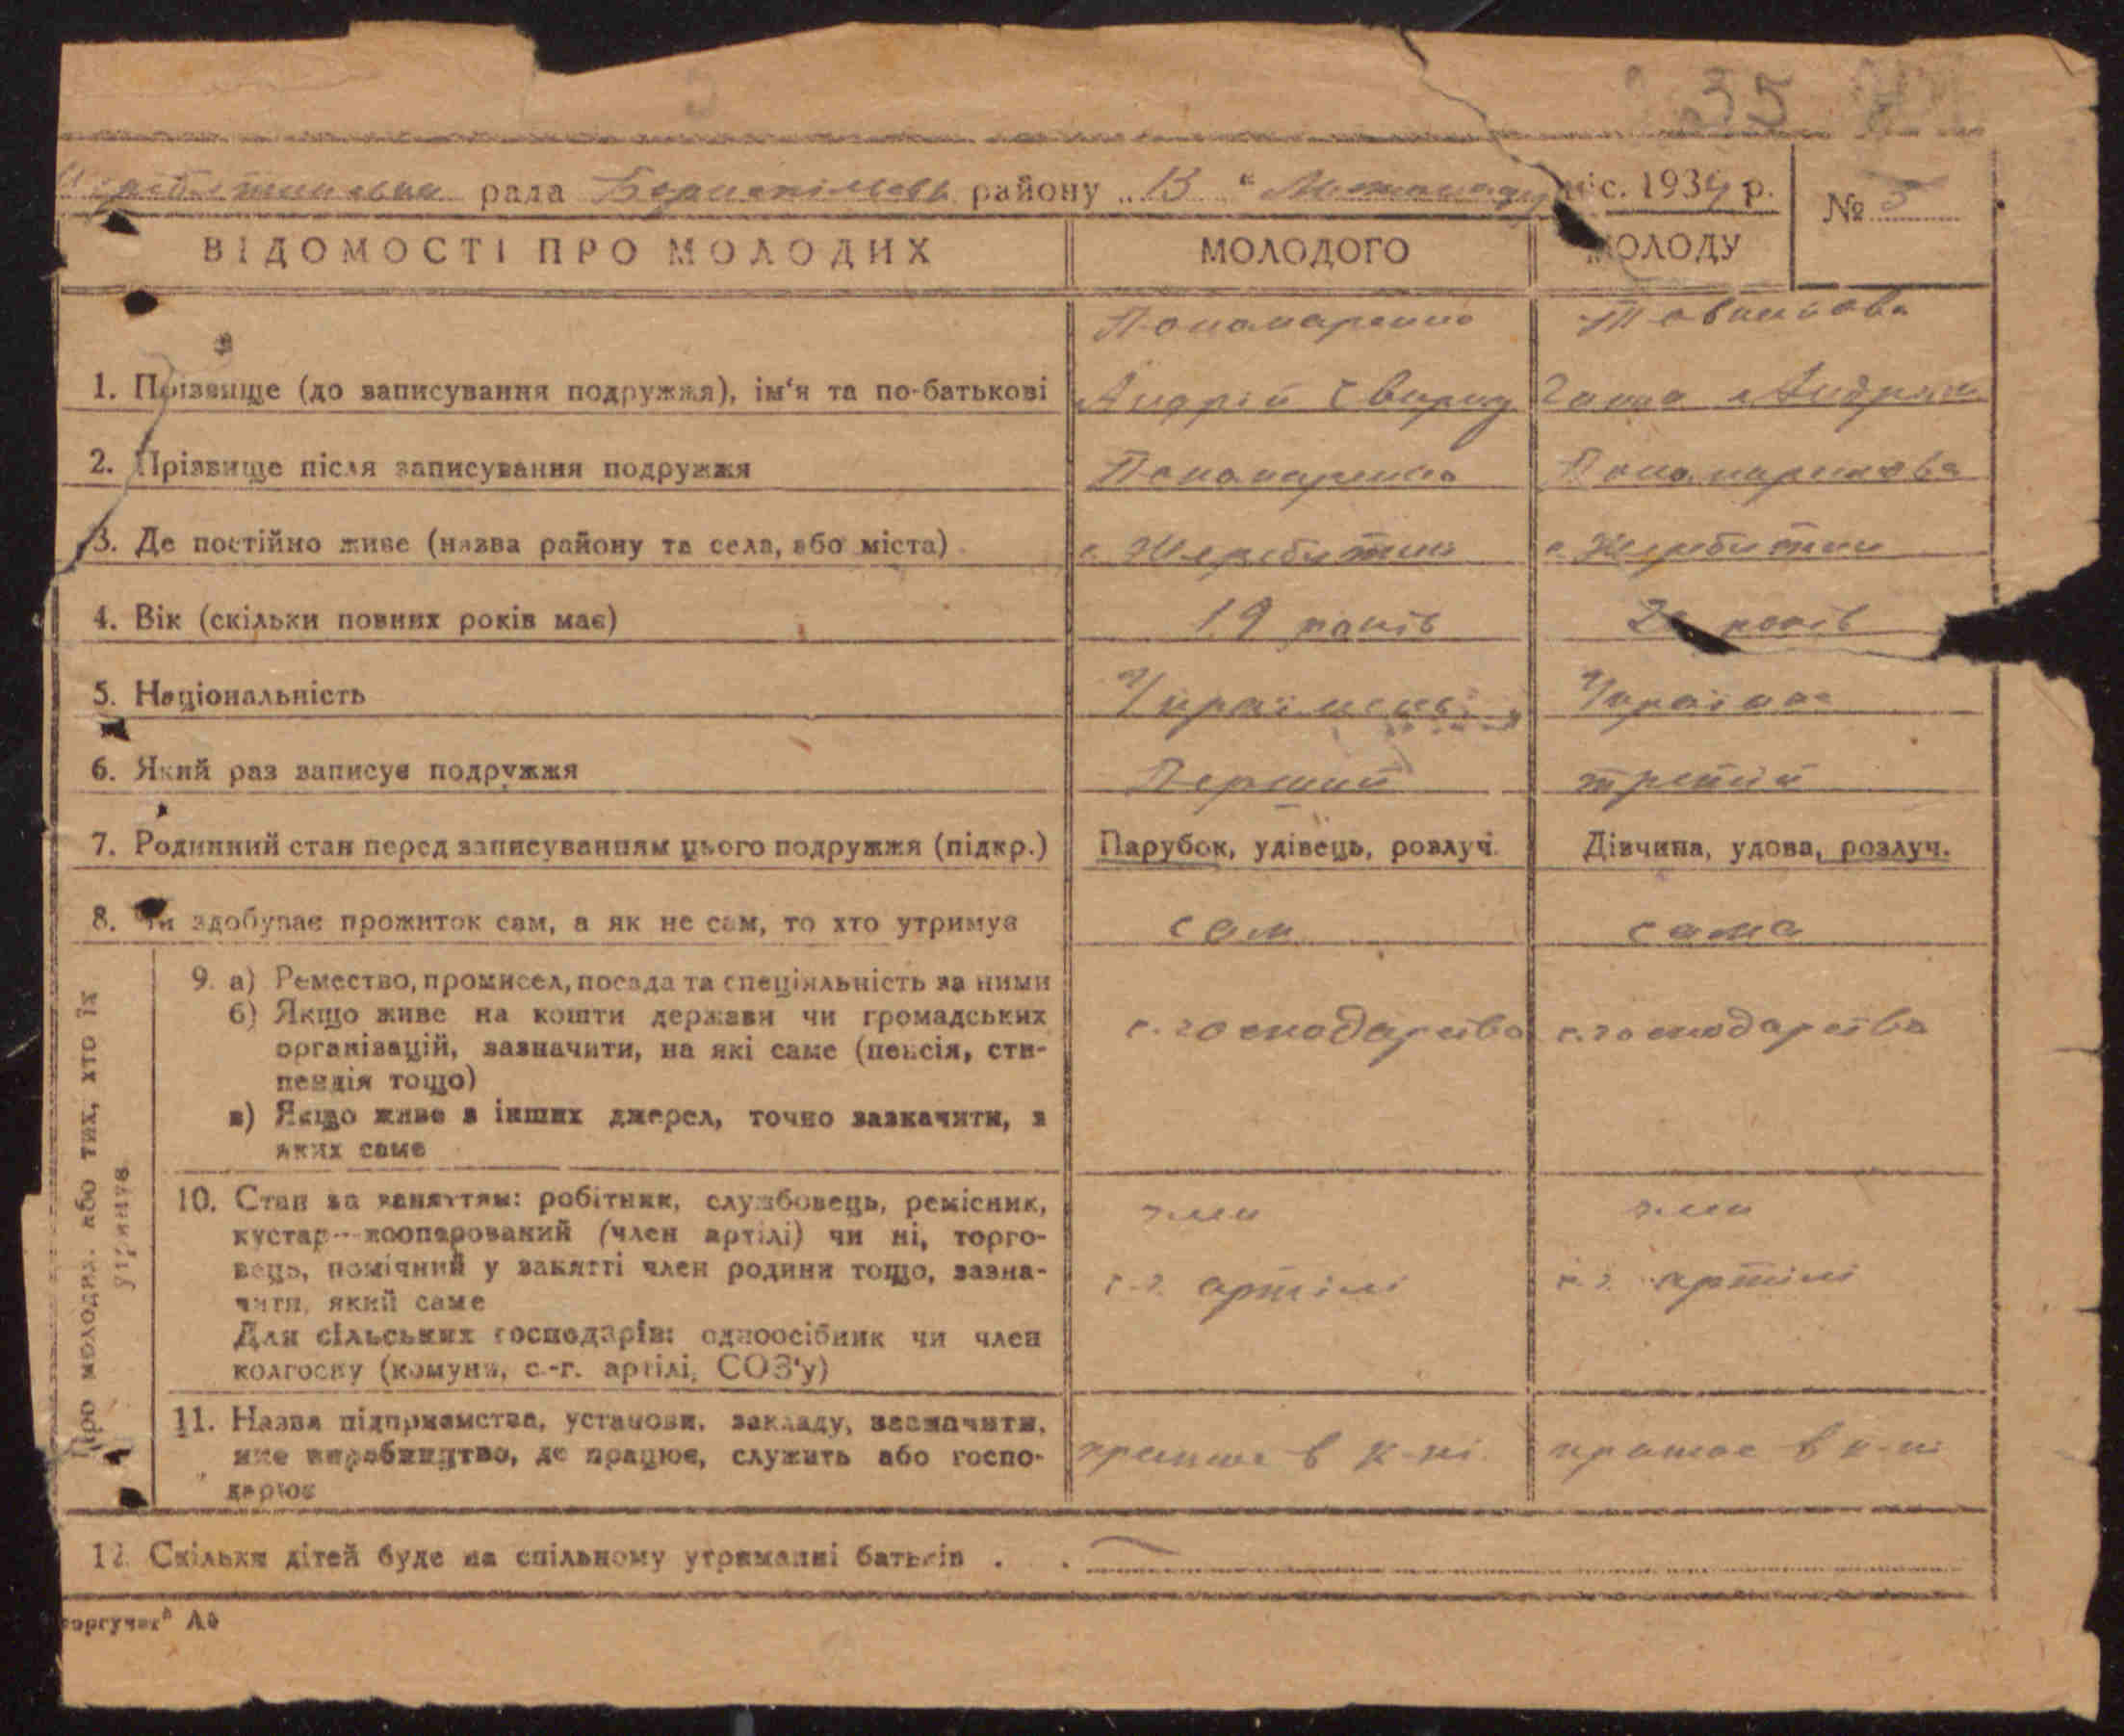 35
рада Бориспільськ району „13“ міс. 1934 р. № 5
ВІДОМОСТІ ПРО МОЛОДИХ МОЛОДОГО МОЛОДУ
Пономаренко
1. Прізвище (до записування подружжя), ім‘я та по-батькові Андрій Свирид Ганна Андріїв
2. Прізвище після записування подружжя Пономаренко Пономаренкова
3. Де постійно живе (назва району та села, або міста) с. Жеребятин с. Жеребятин
4. Вік (скільки повних років має) 19 років років
5. Національність Українець Українка
6. Який раз записує подружжя Перший третій
7. Родинний стан перед записуванням цього подружжя (підкр.) Парубок, удівець, розлуч. Дівчина, удова, розлуч.
8. Чи здобуває прожиток сам, а як не сам, то хто утримує сам сама
Про молодих або тих, хто їх
утримує
9. а) Ремество, промисел, посада та спеціяльність за ними
б) Якщо живе на кошти держави чи громадських с. господарство с. господарство
організацій, зазначити, на які саме (пенсія, сти-
пендія тощо)
в) Якщо живе з інших джерел, точно зазначити, з
яких саме
10. Стан за заняттям: робітник, службовець, ремісник, член член
кустар—кооперований (член артілі) чи ні, торго-
вець, помічний у занятті член родини тощо, зазна- с.-г. артілі с.-г. артілі
чити, який саме
Для сільських господарів: одноосібник чи член
колгоспу (комуни, с.-г. артілі, СОЗ‘у)
11. Назва підприємства, установи, закладу, зазначити,
яке виробництво, де працює, служить або госпо- працює в к-пі працює в к-пі
дарює
12. Скільки дітей буде на спільному утриманні батьків . . —